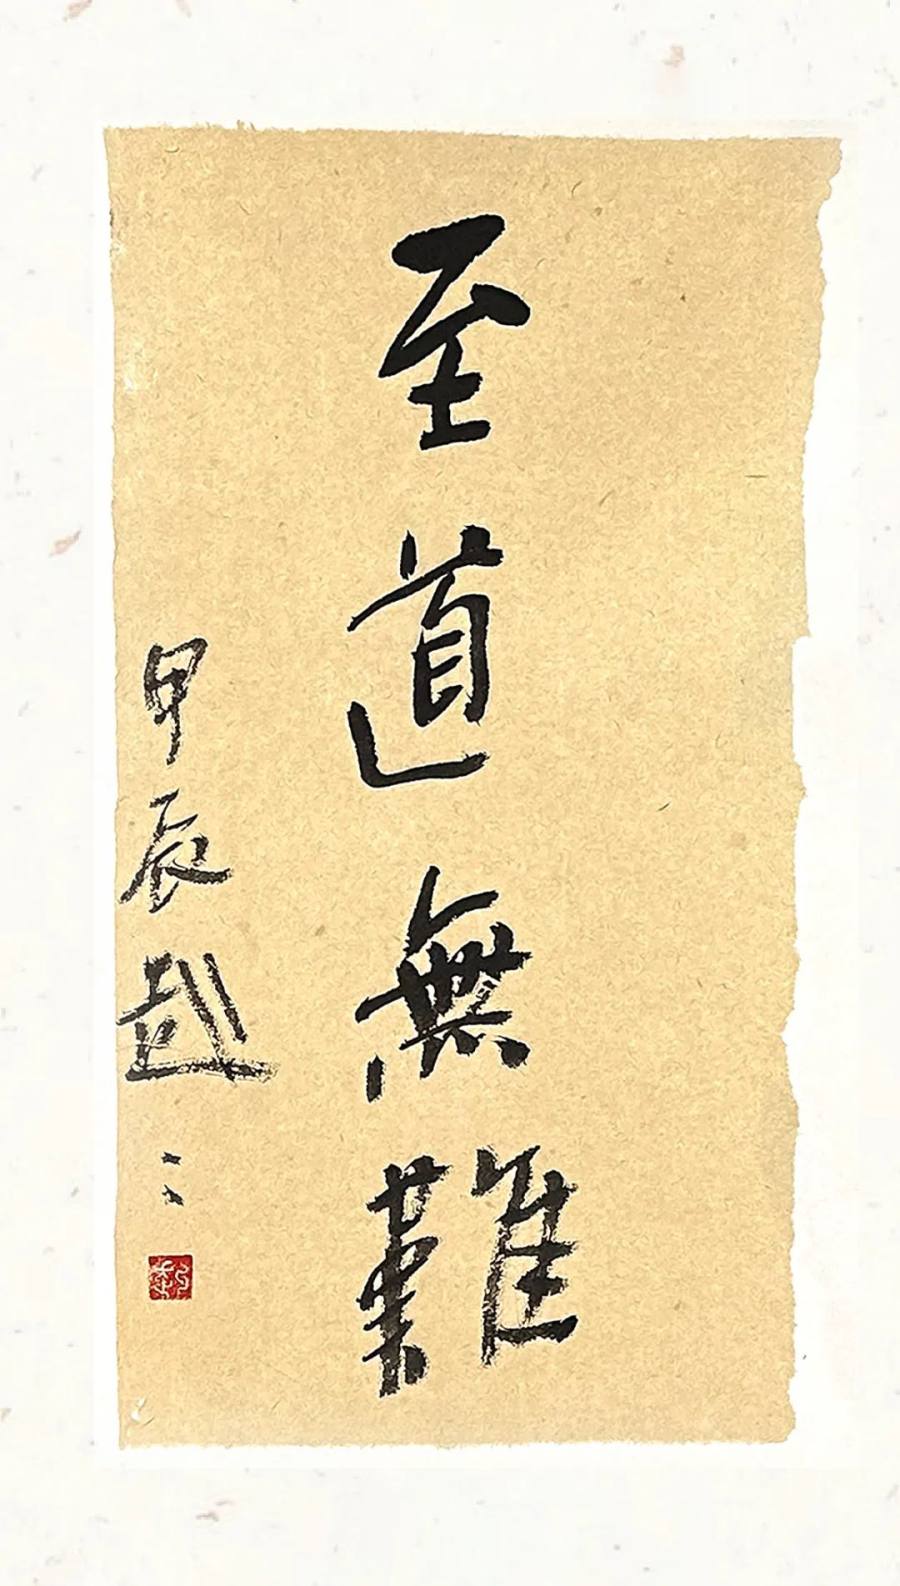 至道無難
甲辰